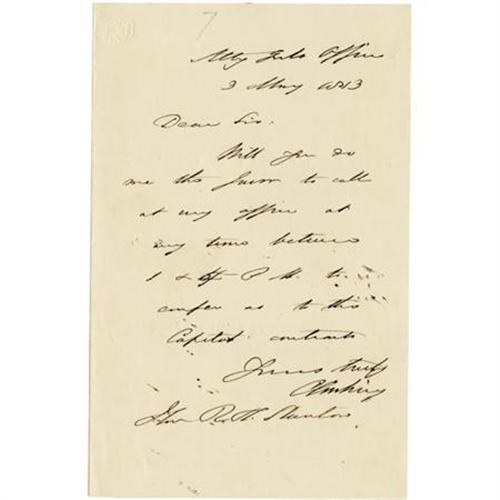 7
Atty Genls Office
3 May 1853
Dear Sir.
Will you do
me the favor to call
at my office at
any time between
1 & 4 P M. to
confer as to the
Capitol contracts
Yours truly
C Cushing
Hon R. H. Stanton